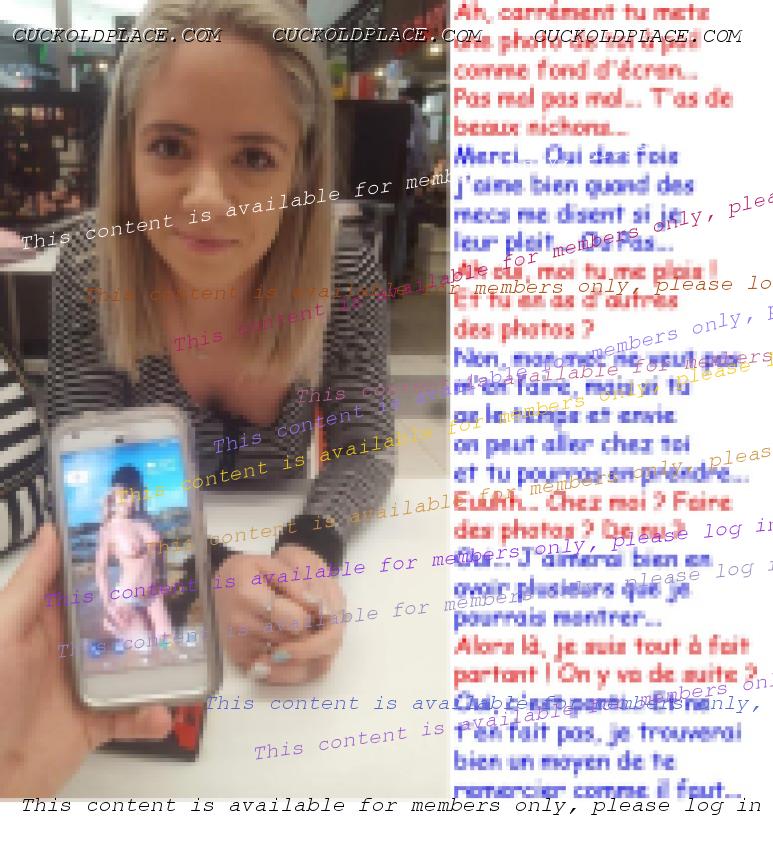 CUCKOLDPLACE.COM CUCKOLDPLACE.COM CUCKOLDPLACE.COM
Ah, carrément tu mets
une photo de toi à poil
comme fond d'écran...
Pas mal pas mal... T'as de
beaux nichons...
Merci... Oui des fois
j'aime bien quand des
mecs me disent si je
leur plait... ou pas...
Ah oui, moi tu me plais !
Et tu en as d'autres
des photos ?
Non, mon mec ne veut pas
m'en faire, mais si tu
as le temps et envie
on peut aller chez toi
et tu pourras en prendre...
Euuhh... Chez moi ? Faire
des photos ? De nu ?
J'aimerai bien en
avoir plusieurs que je
pourrais montrer...
Alors là, je suis tout à fait
partant ! On y va de suite ?
t'en fait pas, je trouverai
bien un moyen de te
remercier comme il faut...
This content is available for memb
This content is available for members only, plea
This content is available for members only, please lo
This content is available for members only, p
This content is available for members
This content is available for members only, please l
This content is available for members only, please
This content is available for members only, please log in
This content is available for members only, please log i
This content is available for members only,
This content is available for members onl
This content is available for members only, please log in